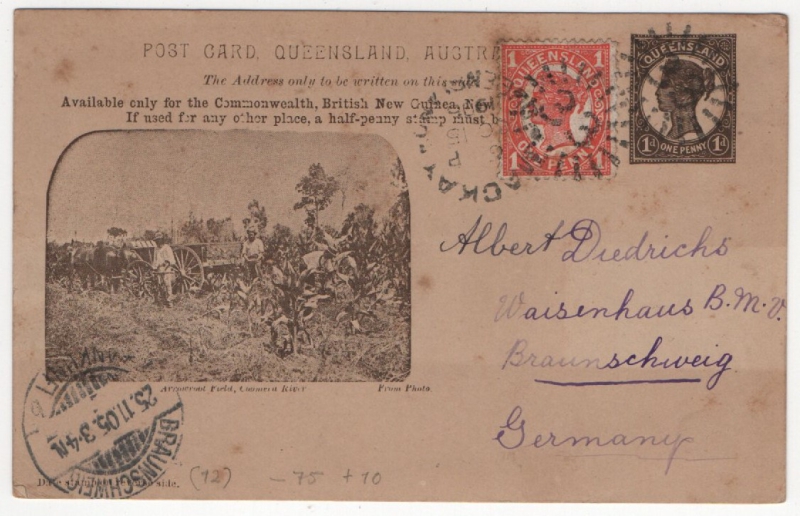 POST CARD, QUEENSLAND, AUSTRA
The Address only to be written on this side
Available only for the Commonwealth, British New Guinea, New
If used for any other place, a half-penny stamp must b
1 QUEENSLAND 1
1 ONE PENNY 1
QUEENSLAND
1d ONE PENNY 1d
MACKAY
Albert Diedrichs
Waisenhaus B.M.V.
Braunschweig
Germany
Arrowroot Field, Coomera River
From Photo.
25.11.05.3-4.N.
BRAUNSCHWEIG
side.
(12) -75 +10